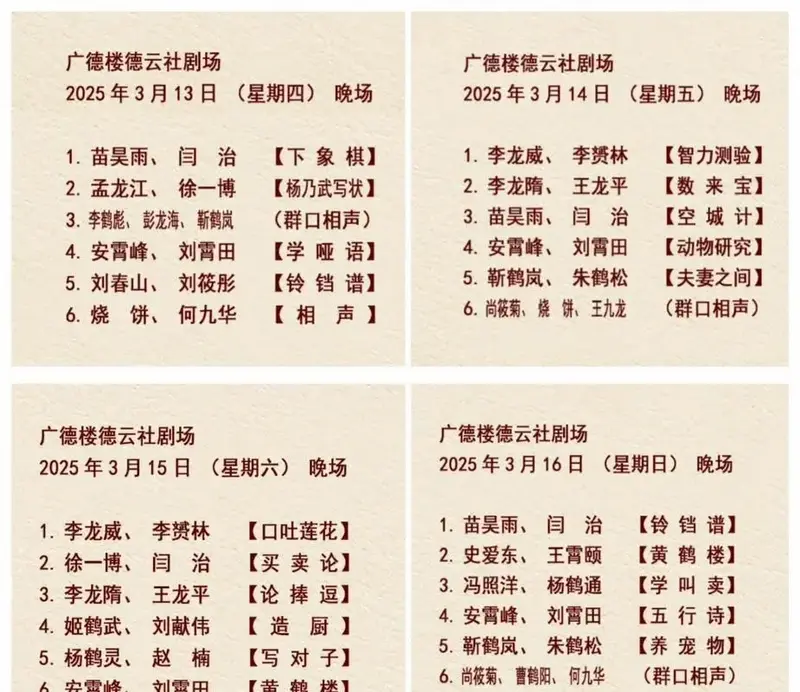 广德楼德云社剧场
2025年3月13日 （星期四） 晚场
1. 苗昊雨、 闫 治 【下 象 棋】
2. 孟龙江、 徐一博 【杨乃武写状】
3. 李鹤彪、彭龙海、靳鹤岚 （群口相声）
4. 安霄峰、 刘霄田 【学 哑 语】
5. 刘春山、 刘筱彤 【铃 铛 谱】
6. 烧 饼、 何九华 【 相 声 】
广德楼德云社剧场
2025年3月14日 （星期五） 晚场
1. 李龙威、 李赟林 【智力测验】
2. 李龙隋、 王龙平 【数 来 宝】
3. 苗昊雨、 闫 治 【空 城 计】
4. 安霄峰、 刘霄田 【动物研究】
5. 靳鹤岚、 朱鹤松 【夫妻之间】
6. 尚筱菊、烧 饼、王九龙 （群口相声）
广德楼德云社剧场
2025年3月15日 （星期六） 晚场
1. 李龙威、 李赟林 【口吐莲花】
2. 徐一博、 闫 治 【买 卖 论】
3. 李龙隋、 王龙平 【论 捧 逗】
4. 姬鹤武、 刘献伟 【 造 厨 】
5. 杨鹤灵、 赵 楠 【写 对 子】
6. 安霄峰、 刘霄田 【黄 鹤 楼】
广德楼德云社剧场
2025年3月16日 （星期日） 晚场
1. 苗昊雨、 闫 治 【铃 铛 谱】
2. 史爱东、 王霄颐 【黄 鹤 楼】
3. 冯照洋、 杨鹤通 【学 叫 卖】
4. 安霄峰、 刘霄田 【五 行 诗】
5. 靳鹤岚、 朱鹤松 【养 宠 物】
6. 尚筱菊、曹鹤阳、何九华 （群口相声）